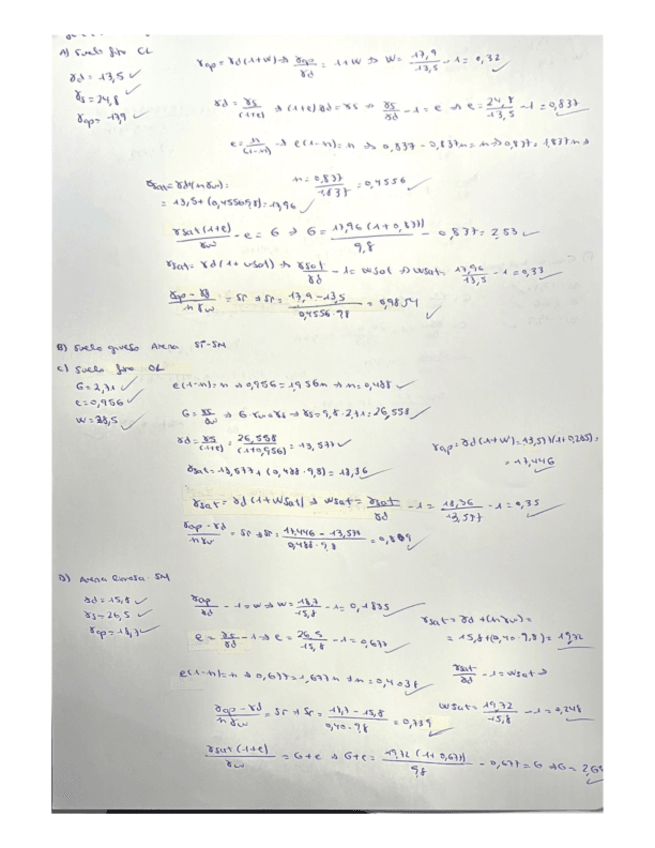 A) Suelo fino CL
γd = 13,5 ✓
γs = 24,8 ✓
γap = 17,9 ✓
γap = γd(1+w) → γap/γd = 1+w → w = 17,9/13,5 - 1 = 0,32 ✓
γd = γs/(1+e) → (1+e)γd = γs → γs/γd - 1 = e → e = 24,8/13,5 - 1 = 0,837 ✓
e = n/(1-n) → e(1-n) = n → 0,837 - 0,837n = n → 0,837 = 1,837n →
n = 0,837/1,837 = 0,4556 ✓
γsat = γd + (nγw) =
= 13,5 + (0,4556·9,8) = 17,96 ✓
γsat(1+e)/γw - e = G → G = 17,96(1+0,837)/9,8 - 0,837 = 2,53 ✓
γsat = γd(1+wsat) → γsat/γd - 1 = wsat → wsat = 17,96/13,5 - 1 = 0,33 ✓
γap - γd/nγw = Sr → Sr = 17,9 - 13,5/0,4556·9,8 = 0,9854 ✓
B) Suelo grueso Arena SP-SM
C) Suelo fino OL
G = 2,71 ✓
e = 0,956 ✓
w = 28,5 ✓
e(1-n) = n → 0,956 = 1,956n → n = 0,488 ✓
G = γs/γw → G·γw = γs → γs = 9,8·2,71 = 26,558 ✓
γd = γs/(1+e) = 26,558/(1+0,956) = 13,577 ✓
γap = γd(1+w) = 13,577(1+0,285) =
= 17,446 ✓
γsat = 13,577 + (0,488·9,8) = 18,36 ✓
γsat = γd(1+wsat) → wsat = γsat/γd - 1 = 18,36/13,577 - 1 = 0,35 ✓
γap - γd/nγw = Sr → Sr = 17,446 - 13,577/0,488·9,8 = 0,809 ✓
D) Arena limosa SM
γd = 15,8 ✓
γs = 26,5 ✓
γap = 18,7 ✓
γap/γd - 1 = w → w = 18,7/15,8 - 1 = 0,1835 ✓
γsat = γd + (nγw) =
= 15,8 + (0,40·9,8) = 19,72 ✓
e = γs/γd - 1 → e = 26,5/15,8 - 1 = 0,677 ✓
e(1-n) = n → 0,677 = 1,677n → n = 0,4037 ✓
γsat/γd - 1 = wsat →
wsat = 19,72/15,8 - 1 = 0,248 ✓
γap - γd/nγw = Sr → Sr = 18,7 - 15,8/0,40·9,8 = 0,739 ✓
γsat(1+e)/γw = G+e → G+e = 19,72(1+0,677)/9,8 - 0,677 = G → G =